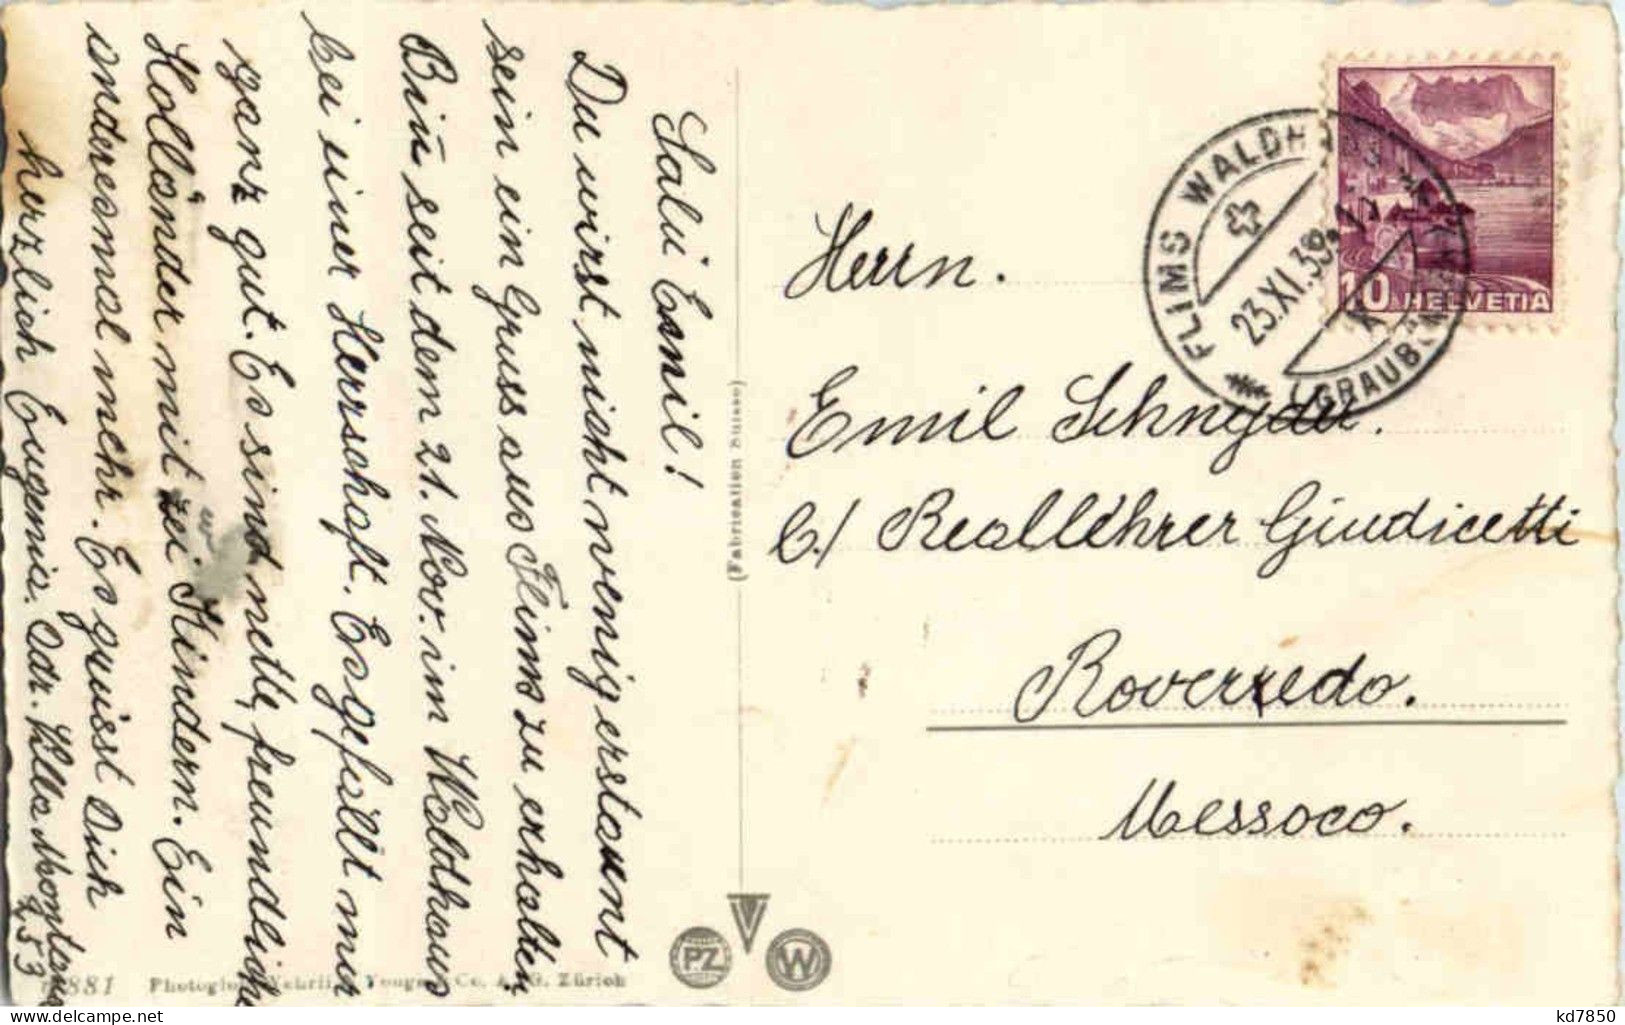 Salü Emil!
Du wirst nicht wenig erstaunt
sein ein Gruss aus Flims zu erhalten
Bin seit dem 21. Nov. im Waldhaus
bei einer Herrschaft. Es gefällt mir
ganz gut. Es sind nette, freundliche
Holländer mit zwei Kindern. Ein
anderesmal mehr. Es grüsst Dich
herzlich Eugenia. Adr. Villa Montana
253
(Fabrication Suisse)
881 Photoglob-Wehrli & Co. A.G. Zürich
PZ
V
W
FLIMS WALDHAUS
23.XI.38.
(GRAUB
10 HELVETIA
Herrn.
Emil Schnyder.
C/ Reallehrer Giudicetti
Roveredo.
Messoco.
kd7850